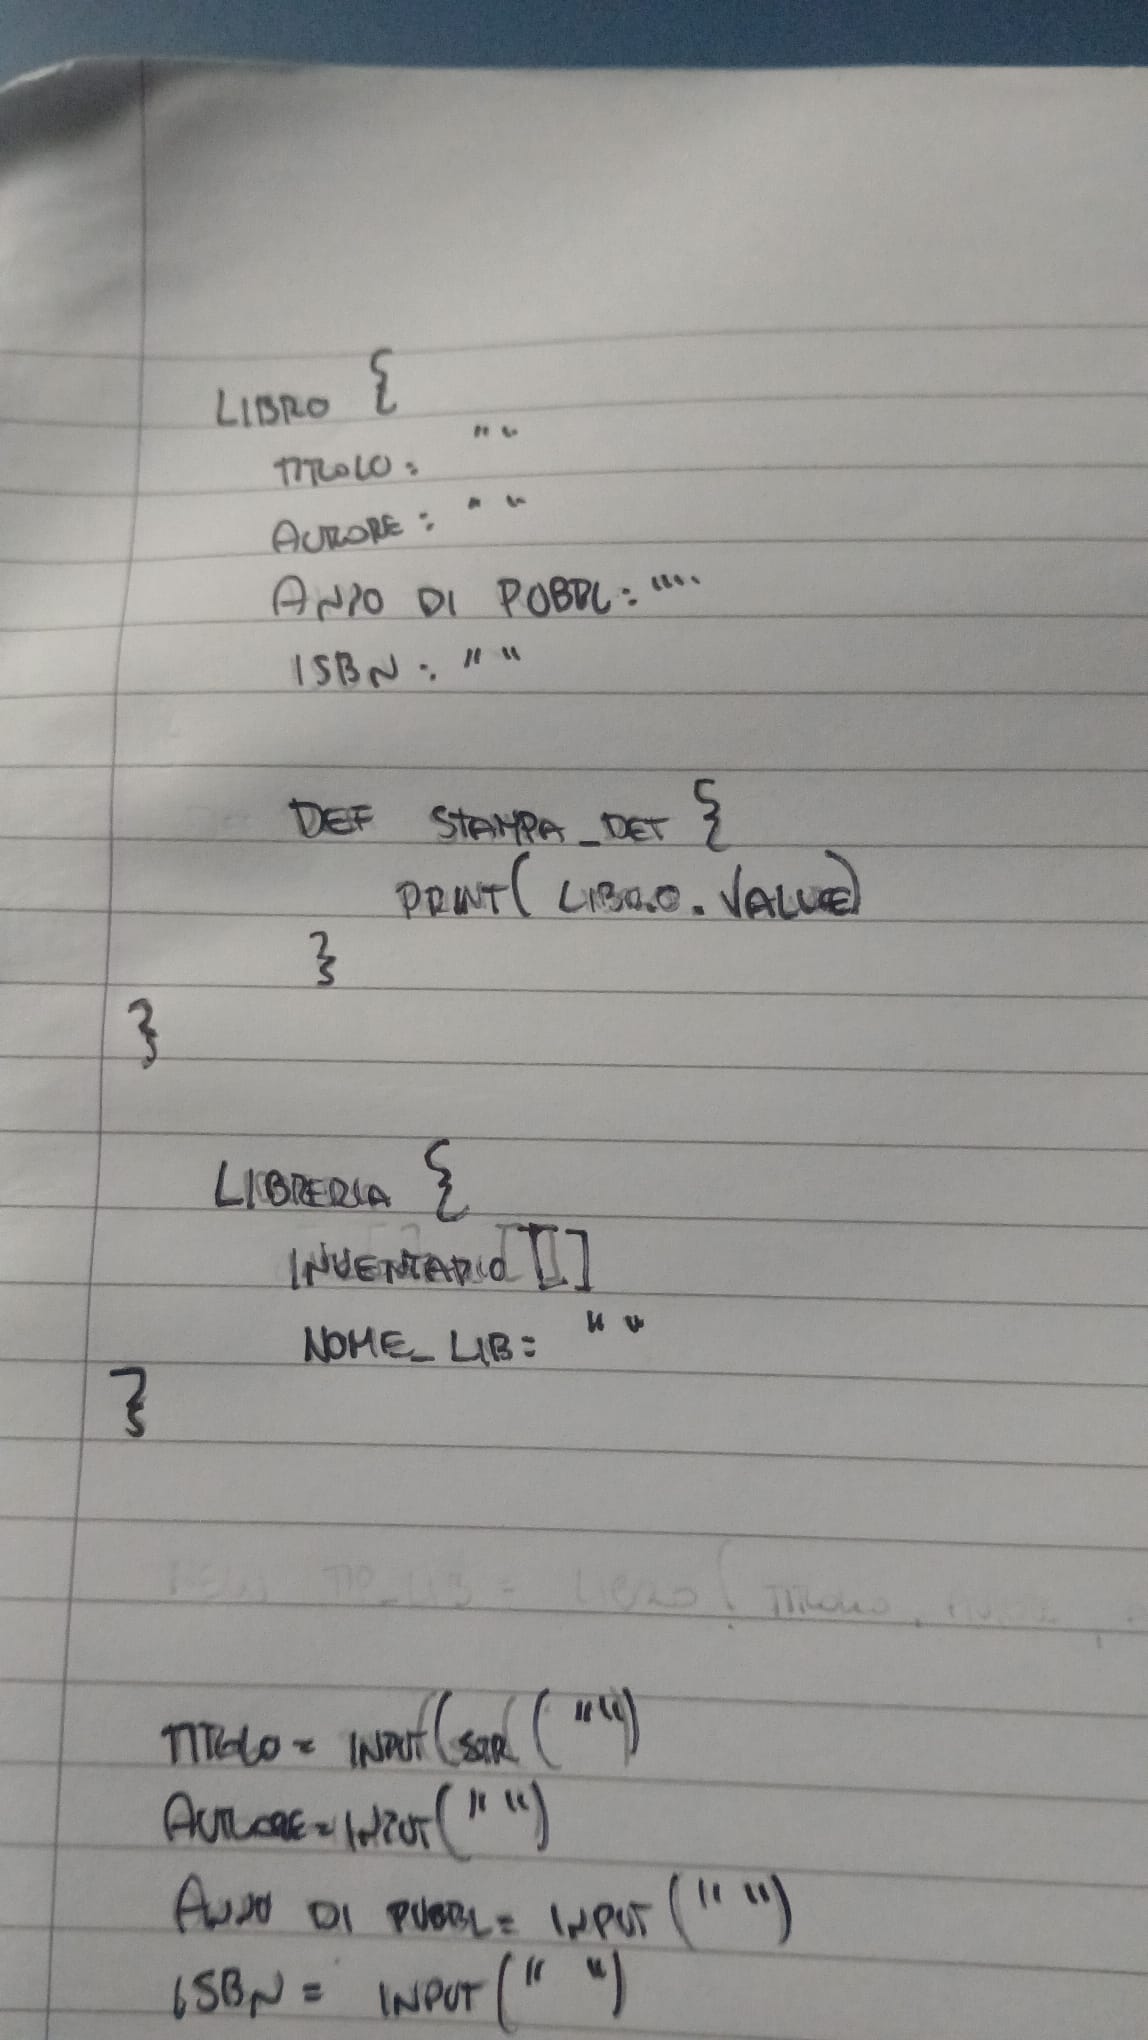 LIBRO {
TITOLO: " "
AUTORE: " "
ANNO DI PUBBL: " "
ISBN: " "
DEF STAMPA_DET {
PRINT( LIBRO. VALUE)
}
}
LIBRERIA {
INVENTARIO [ ]
NOME_LIB= " "
}
LIBRO ( TITOLO,
TITOLO = INPUT(STR( " ")
AUTORE = INPUT( " ")
ANNO DI PUBBL= INPUT ( " ")
ISBN = INPUT ( " ")